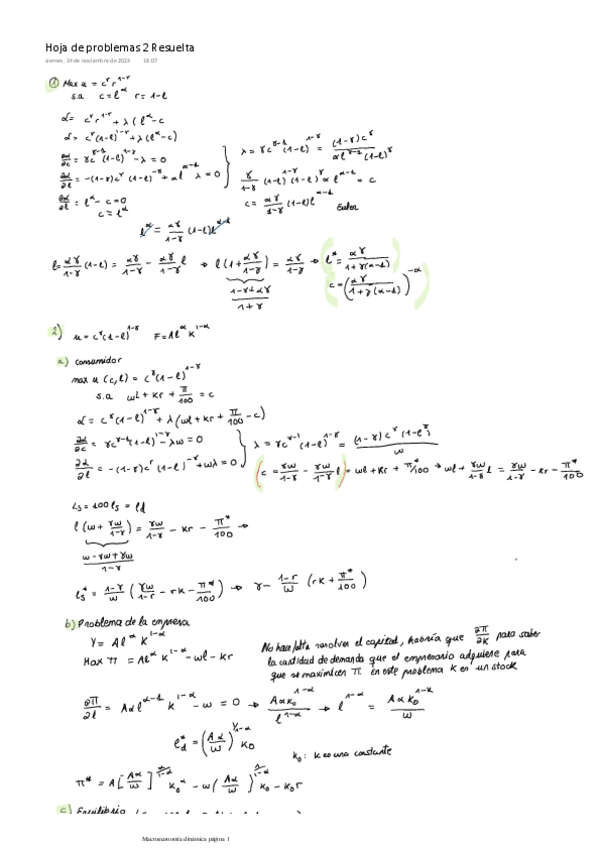 Hoja de problemas 2 Resuelta
viernes, 24 de noviembre de 2023 18:07
① Max u = c^γ r^{1-γ}
s.a c = l^α r = 1-l
L = c^γ r^{1-γ} + λ(l^α - c
L = c^γ (1-l)^{1-γ} + λ(l^α - c)
∂L/∂c = γc^{γ-1} (1-l)^{1-γ} - λ = 0
λ = γc^{γ-1} (1-l)^{1-γ} = (1-γ)c^γ / αl^{α-1} (1-l)^γ
∂L/∂l = -(1-γ)c^γ (1-l)^{-γ} + αl^{α-1} λ = 0
γ/1-γ (1-l)^{1-γ} (1-l)^γ α l^{α-1} = c
∂L/∂λ = l^α - c = 0
c = l^α
c = αγ/1-γ (1-l) l^{α-1}
Euler
l^α = αγ/1-γ (1-l) l^{α-1}
l = αγ/1-γ (1-l) = αγ/1-γ - αγ/1-γ l → l(1 + αγ/1-γ) = αγ/1-γ → l* = αγ / 1+γ(α-1)
1-γ+αγ / 1+γ
c = (αγ / 1+γ(α-1))^{-α}
2) u = c^γ (1-l)^{1-γ} F = Al^α K^{1-α}
a) consumidor
max u (c,l) = c^γ (1-l)^{1-γ}
s.a wl + kr + π/100 = c
L = c^γ (1-l)^{1-γ} + λ(wl + kr + π/100 - c)
∂L/∂c = γc^{γ-1} (1-l)^{1-γ} - λw = 0
λ = γc^{γ-1} (1-l)^{1-γ} = (1-γ) c^γ (1-l^γ) / w
∂L/∂l = -(1-γ)c^γ (1-l)^{-γ} + wλ = 0
(c = γw/1-γ - γw/1-γ l) = wl + kr + π*/100 → wl + γw/1-γ l = γw/1-γ - kr - π*/100
Ls = 100 ls = ld
l(w + γw/1-γ) = γw/1-γ - kr - π*/100 →
w-γw+γw / 1-γ
ls* = 1-γ/w (γw/1-γ - rk - π*/100) → γ - 1-γ/w (rk + π*/100)
b) Problema de la empresa
Y = Al^α K^{1-α}
Max π = Al^α K^{1-α} - wl - kr
No hace falta resolver el capital, habría que ∂π/∂K para saber
la cantidad de demanda que el empresario adquiere para
que se maximicen π. en este problema K es un stock
∂π/∂l = Aαl^{α-1} K^{1-α} - w = 0 → Aαk₀^{1-α} / l^{1-α} → l^{1-α} = Aαk₀^{1-α} / w
ld* = (Aα/w)^{1/1-α} k₀
k₀: k es una constante
π* = A[Aα/w]^{α/1-α} k₀^α - w(Aα/w)^{1/1-α} k₀ - k₀r
c) Equilibrio
Macroeconomía dinámica página 1